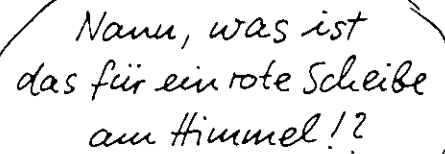 Nanu, was ist
das für ein rote Scheibe
am Himmel!?